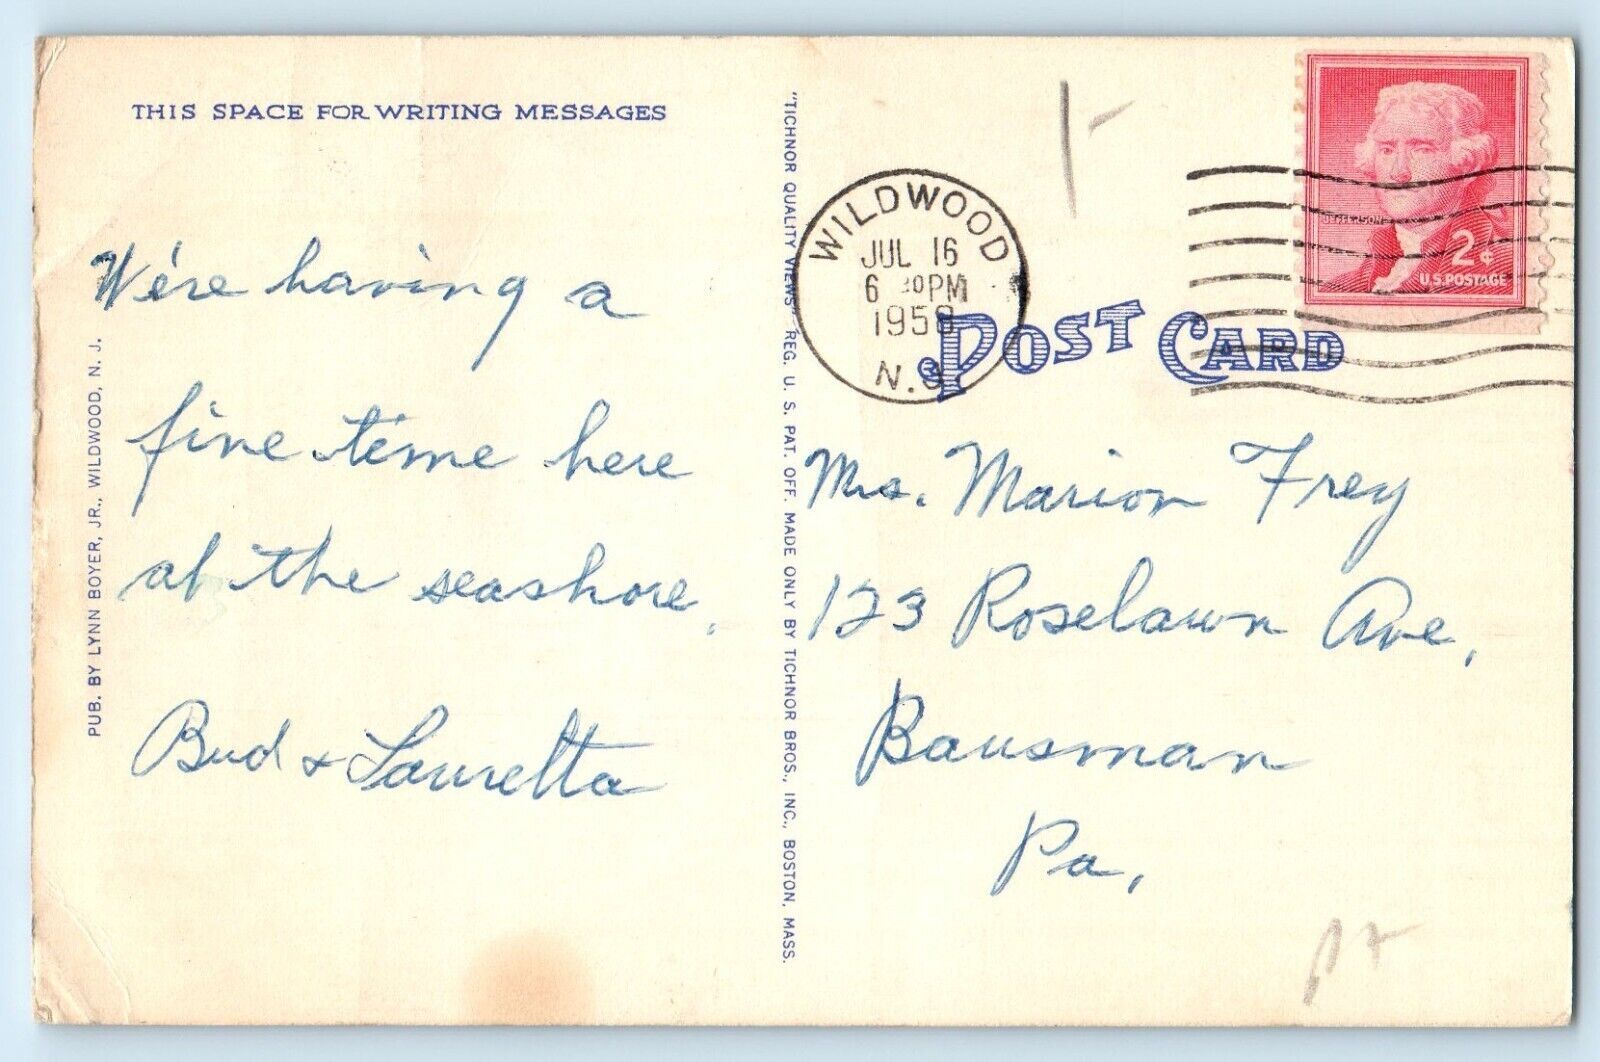 THIS SPACE FOR WRITING MESSAGES
We're having a
fine time here
at the seashore.
Bud & Lauretta
PUB. BY LYNN BOYER, JR., WILDWOOD, N. J.
"TICHNOR QUALITY VIEWS" REG. U. S. PAT. OFF. MADE ONLY BY TICHNOR BROS., INC., BOSTON, MASS.
WILDWOOD
JUL 16
6 PM
1958
N.J.
JEFFERSON
2¢
U.S. POSTAGE
POST CARD
Mrs. Marion Frey
123 Roselawn Ave,
Bausman
Pa,